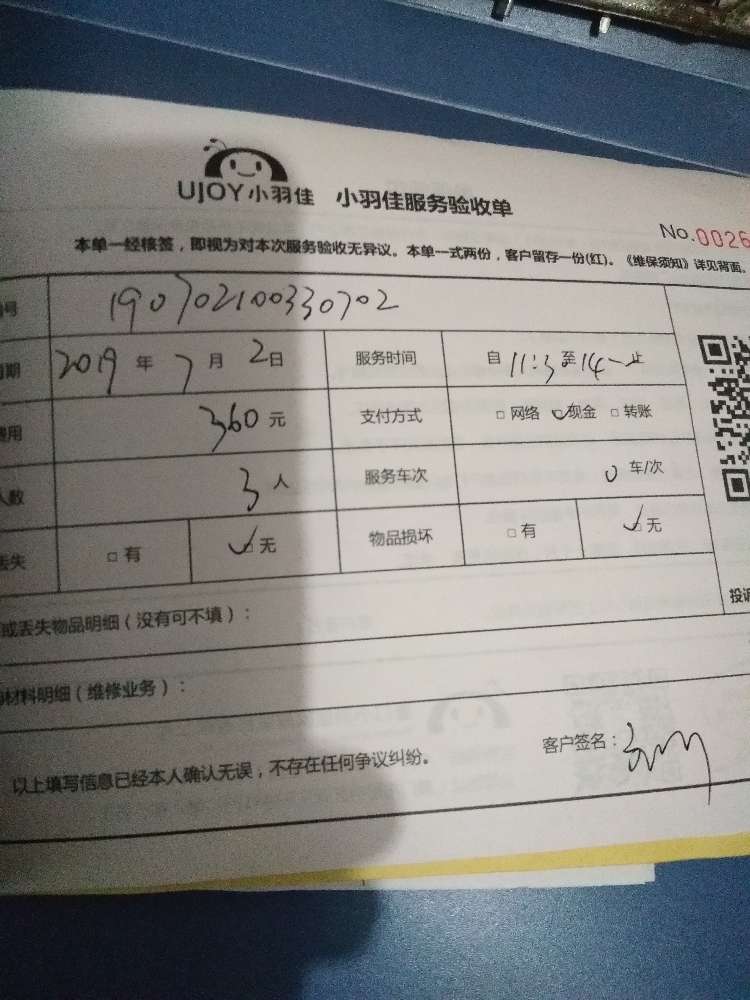 UJOY小羽佳 小羽佳服务验收单
No.0026
本单一经核签，即视为对本次服务验收无异议。本单一式两份，客户留存一份(红)。《维保须知》详见背面。
号 190702100330702
期 2019年7月2日 服务时间 自11:3至14一止
费用 360元 支付方式 □网络 □现金 □转账
人数 3人 服务车次 0车/次
丢失 □有 □无 物品损坏 □有 □无
投诉
或丢失物品明细（没有可不填）：
材料明细（维修业务）：
以上填写信息已经本人确认无误，不存在任何争议纠纷。 客户签名：